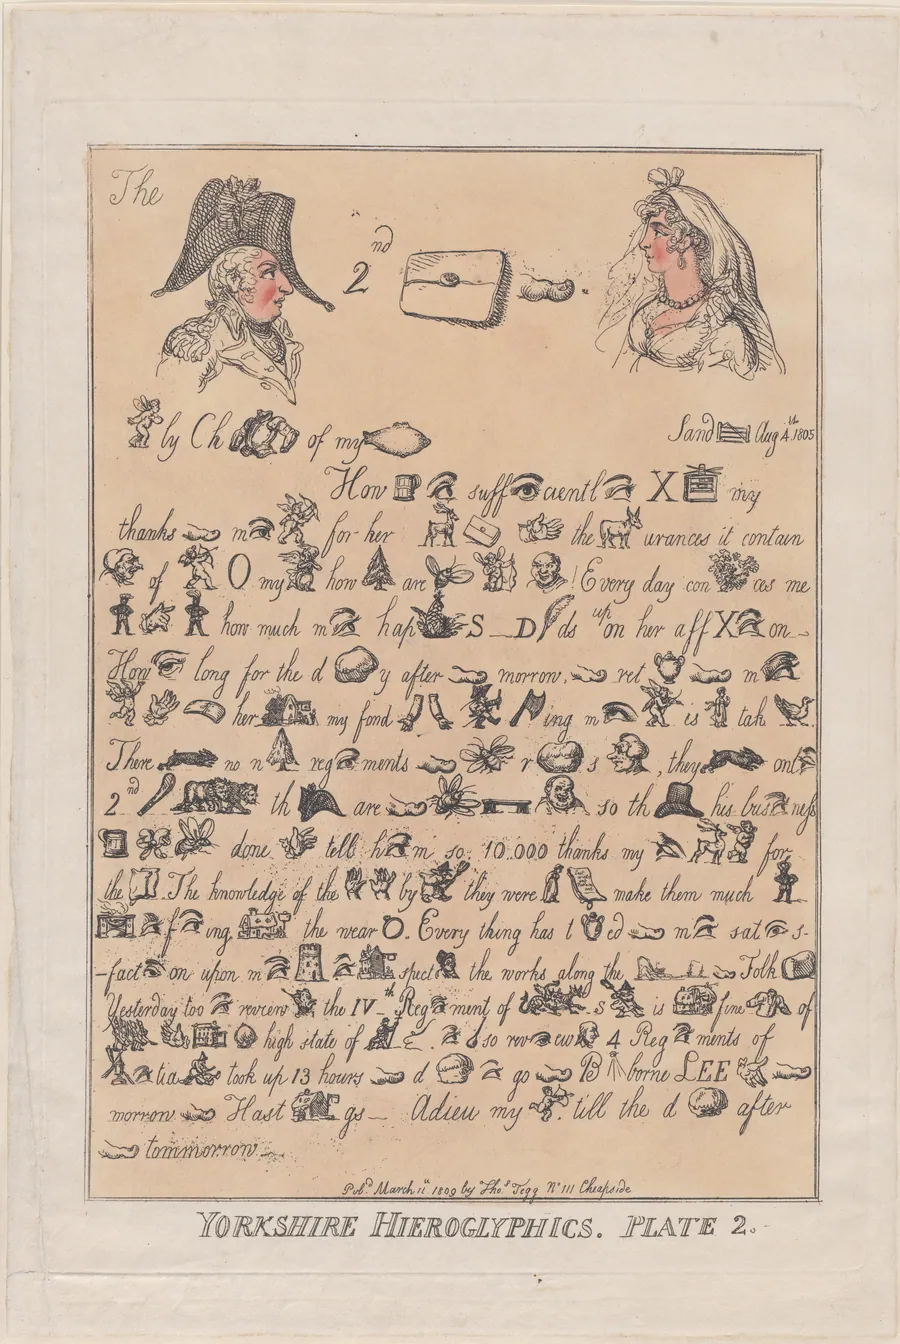 The
2nd
by Ch of my
Sand Aug 4th 1805
How sufficientl X my
thanks m for her the urances it contain
of O my how are ! Every day con ces me
how much m hap S D ds up on her aff X on
How long for the d y after morrow, ret m
her my fond ing m is tak
There no n reg ments r s , they onl
2nd th are so th his bus ness
done tell h m so 10.000 thanks my for
the The knowledge of the by they were make them much
f ing the wear O. Every thing has t ed m sat s-
-fact on upon m spect the works along the Folk
Yesterday too review the IVth Reg ment of s is fine of
high state of . so rev ew 4 Reg ments of
tia took up 13 hours d go B borne LEE
morrow Hast gs Adieu my till the d after
tommorrow
Pubd March 11th 1809 by Thos Tegg No 111 Cheapside
YORKSHIRE HIEROGLYPHICS. PLATE 2.